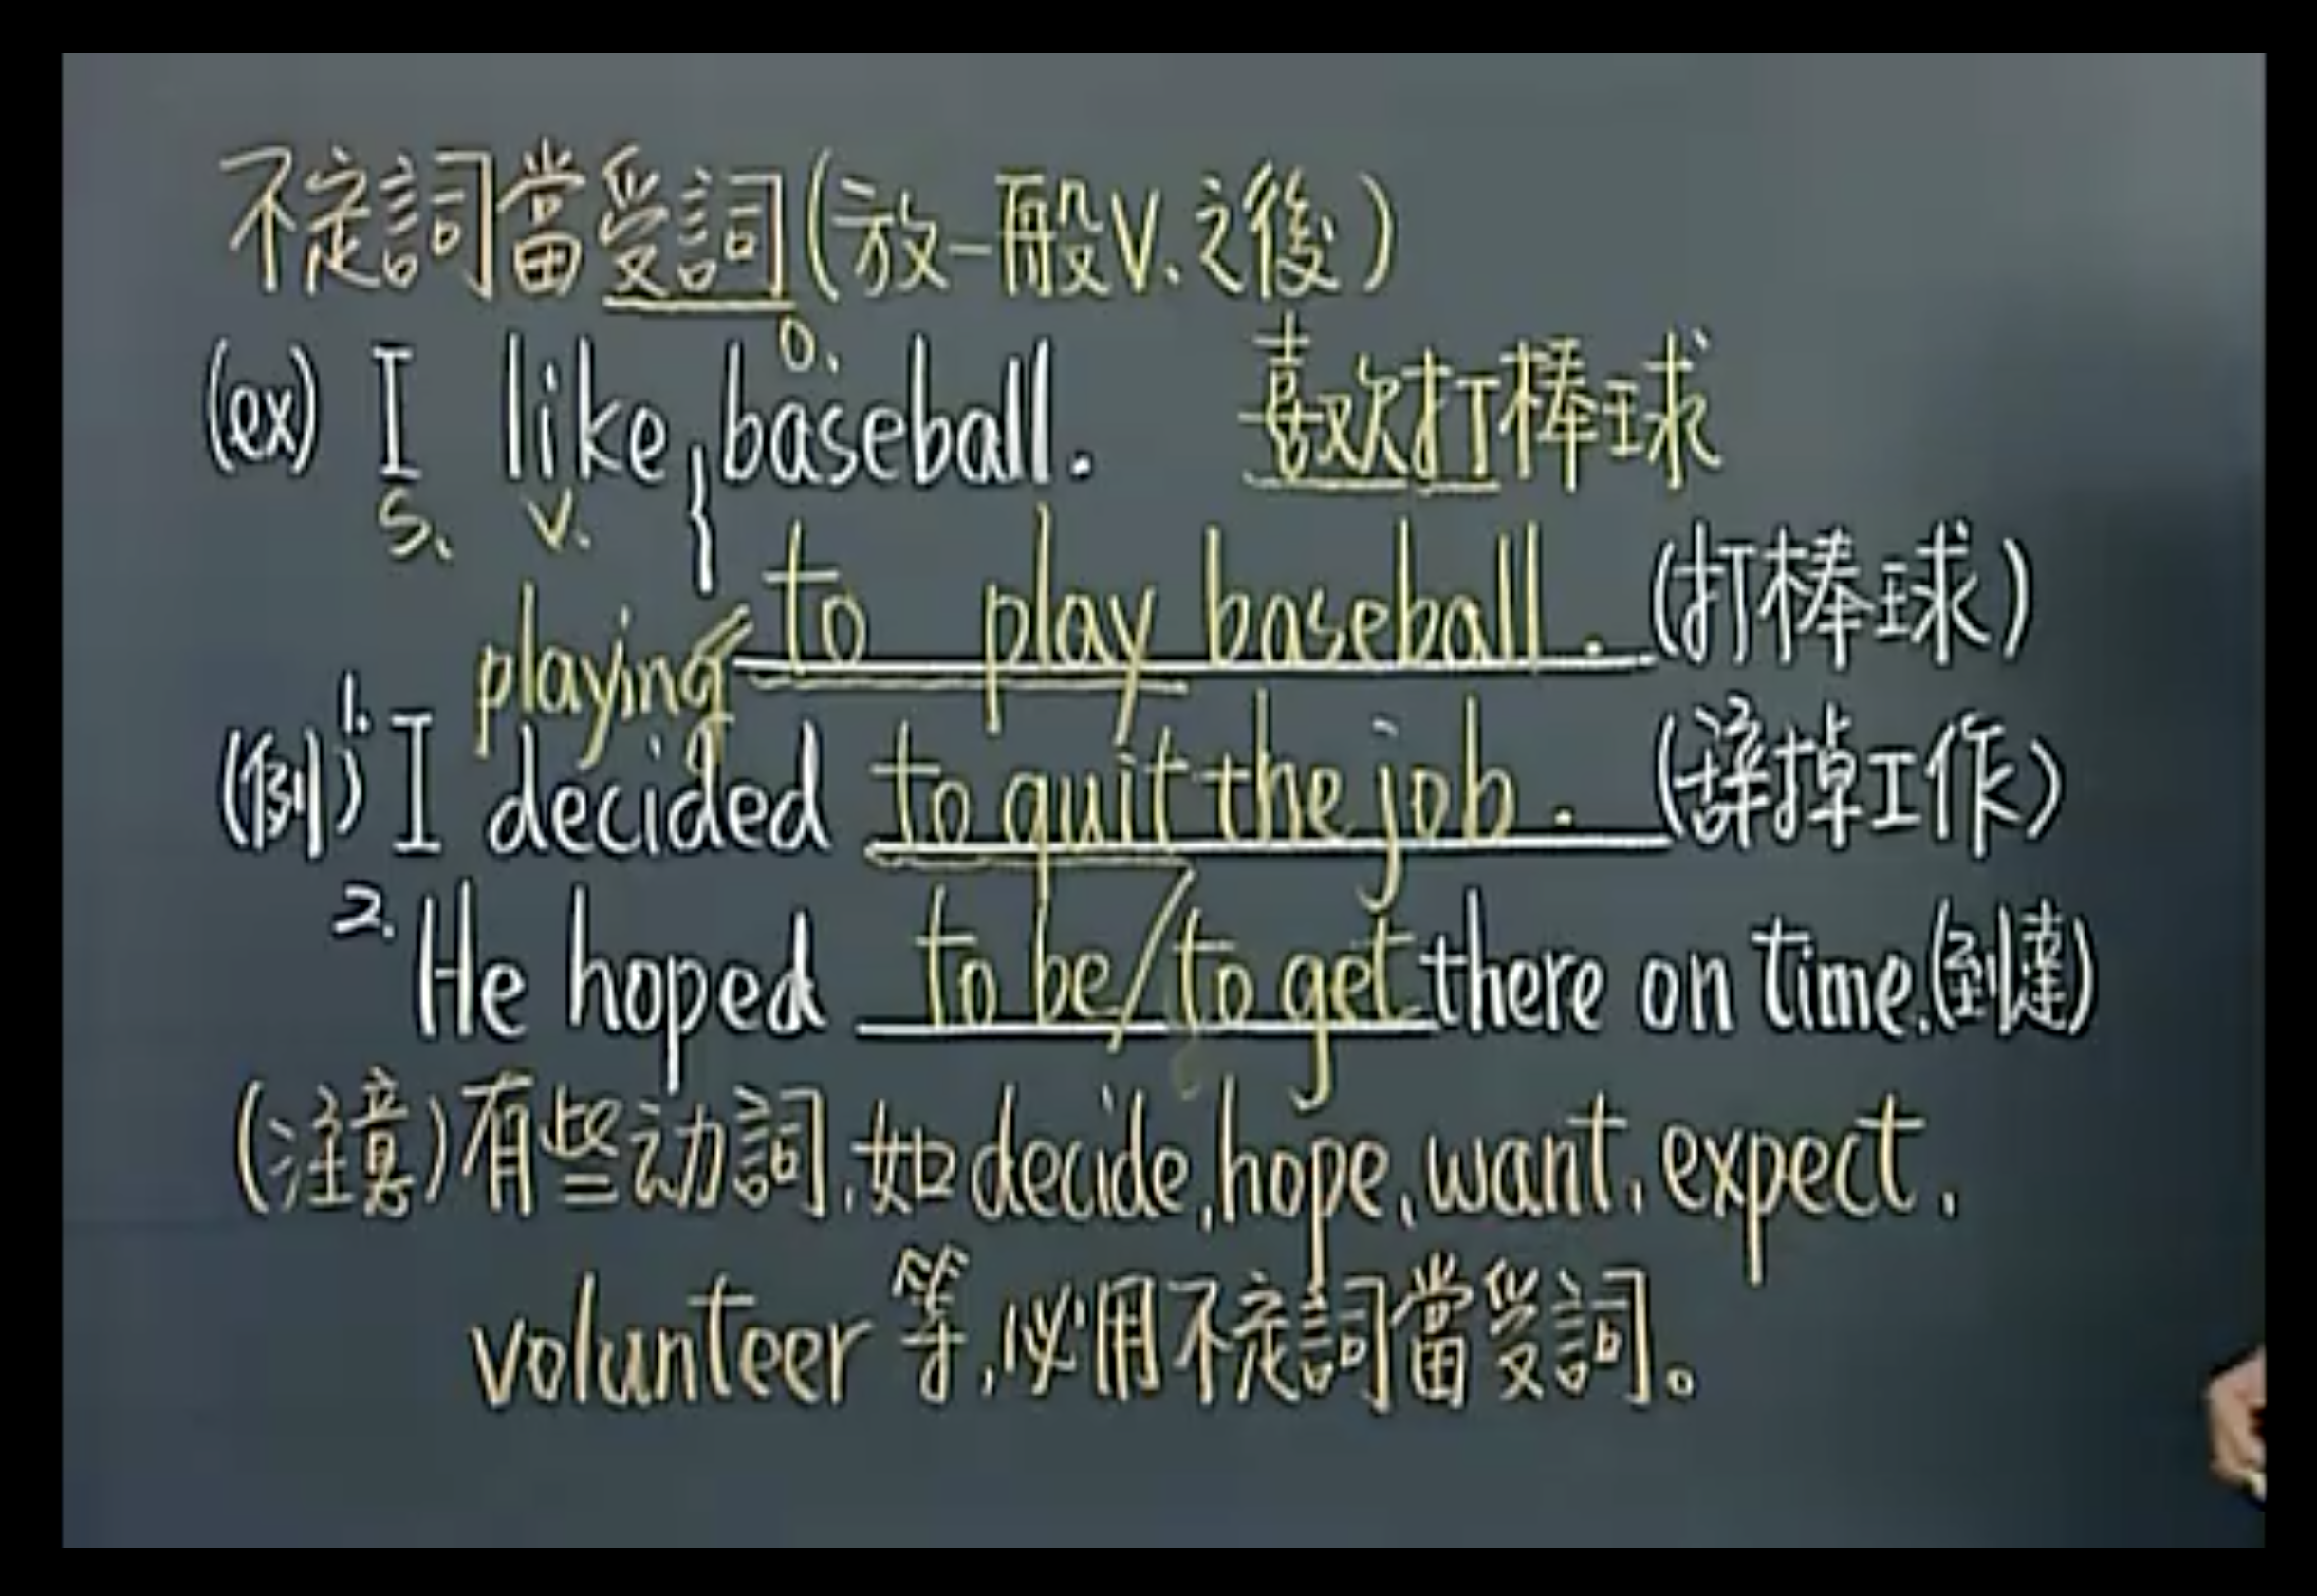 不定詞當受詞(放一般V.之後)
O.
(ex) I like baseball. 喜欢打棒球
S. V.
{ to play baseball. (打棒球)
playing
(例) 1. I decided to quit the job. (辞掉工作)
2. He hoped to be/to get there on time.(到達)
(注意)有些动詞,如decide,hope,want,expect,
volunteer等,必用不定詞當受詞。